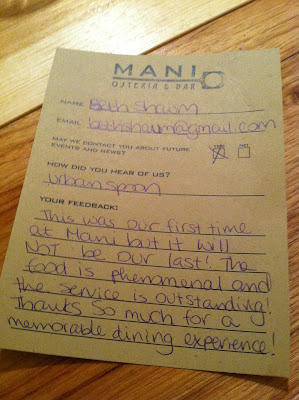 MANI
OSTERIA & BAR
NAME Beth Shaum
EMAIL bethshaum@gmail.com
MAY WE CONTACT YOU ABOUT FUTURE YES NO
EVENTS AND NEWS?
HOW DID YOU HEAR OF US?
urbanspoon
YOUR FEEDBACK:
This was our first time
at Mani but it will
NOT be our last! The
food is phenomenal and
the service is outstanding!
Thanks so much for a
memorable dining experience!